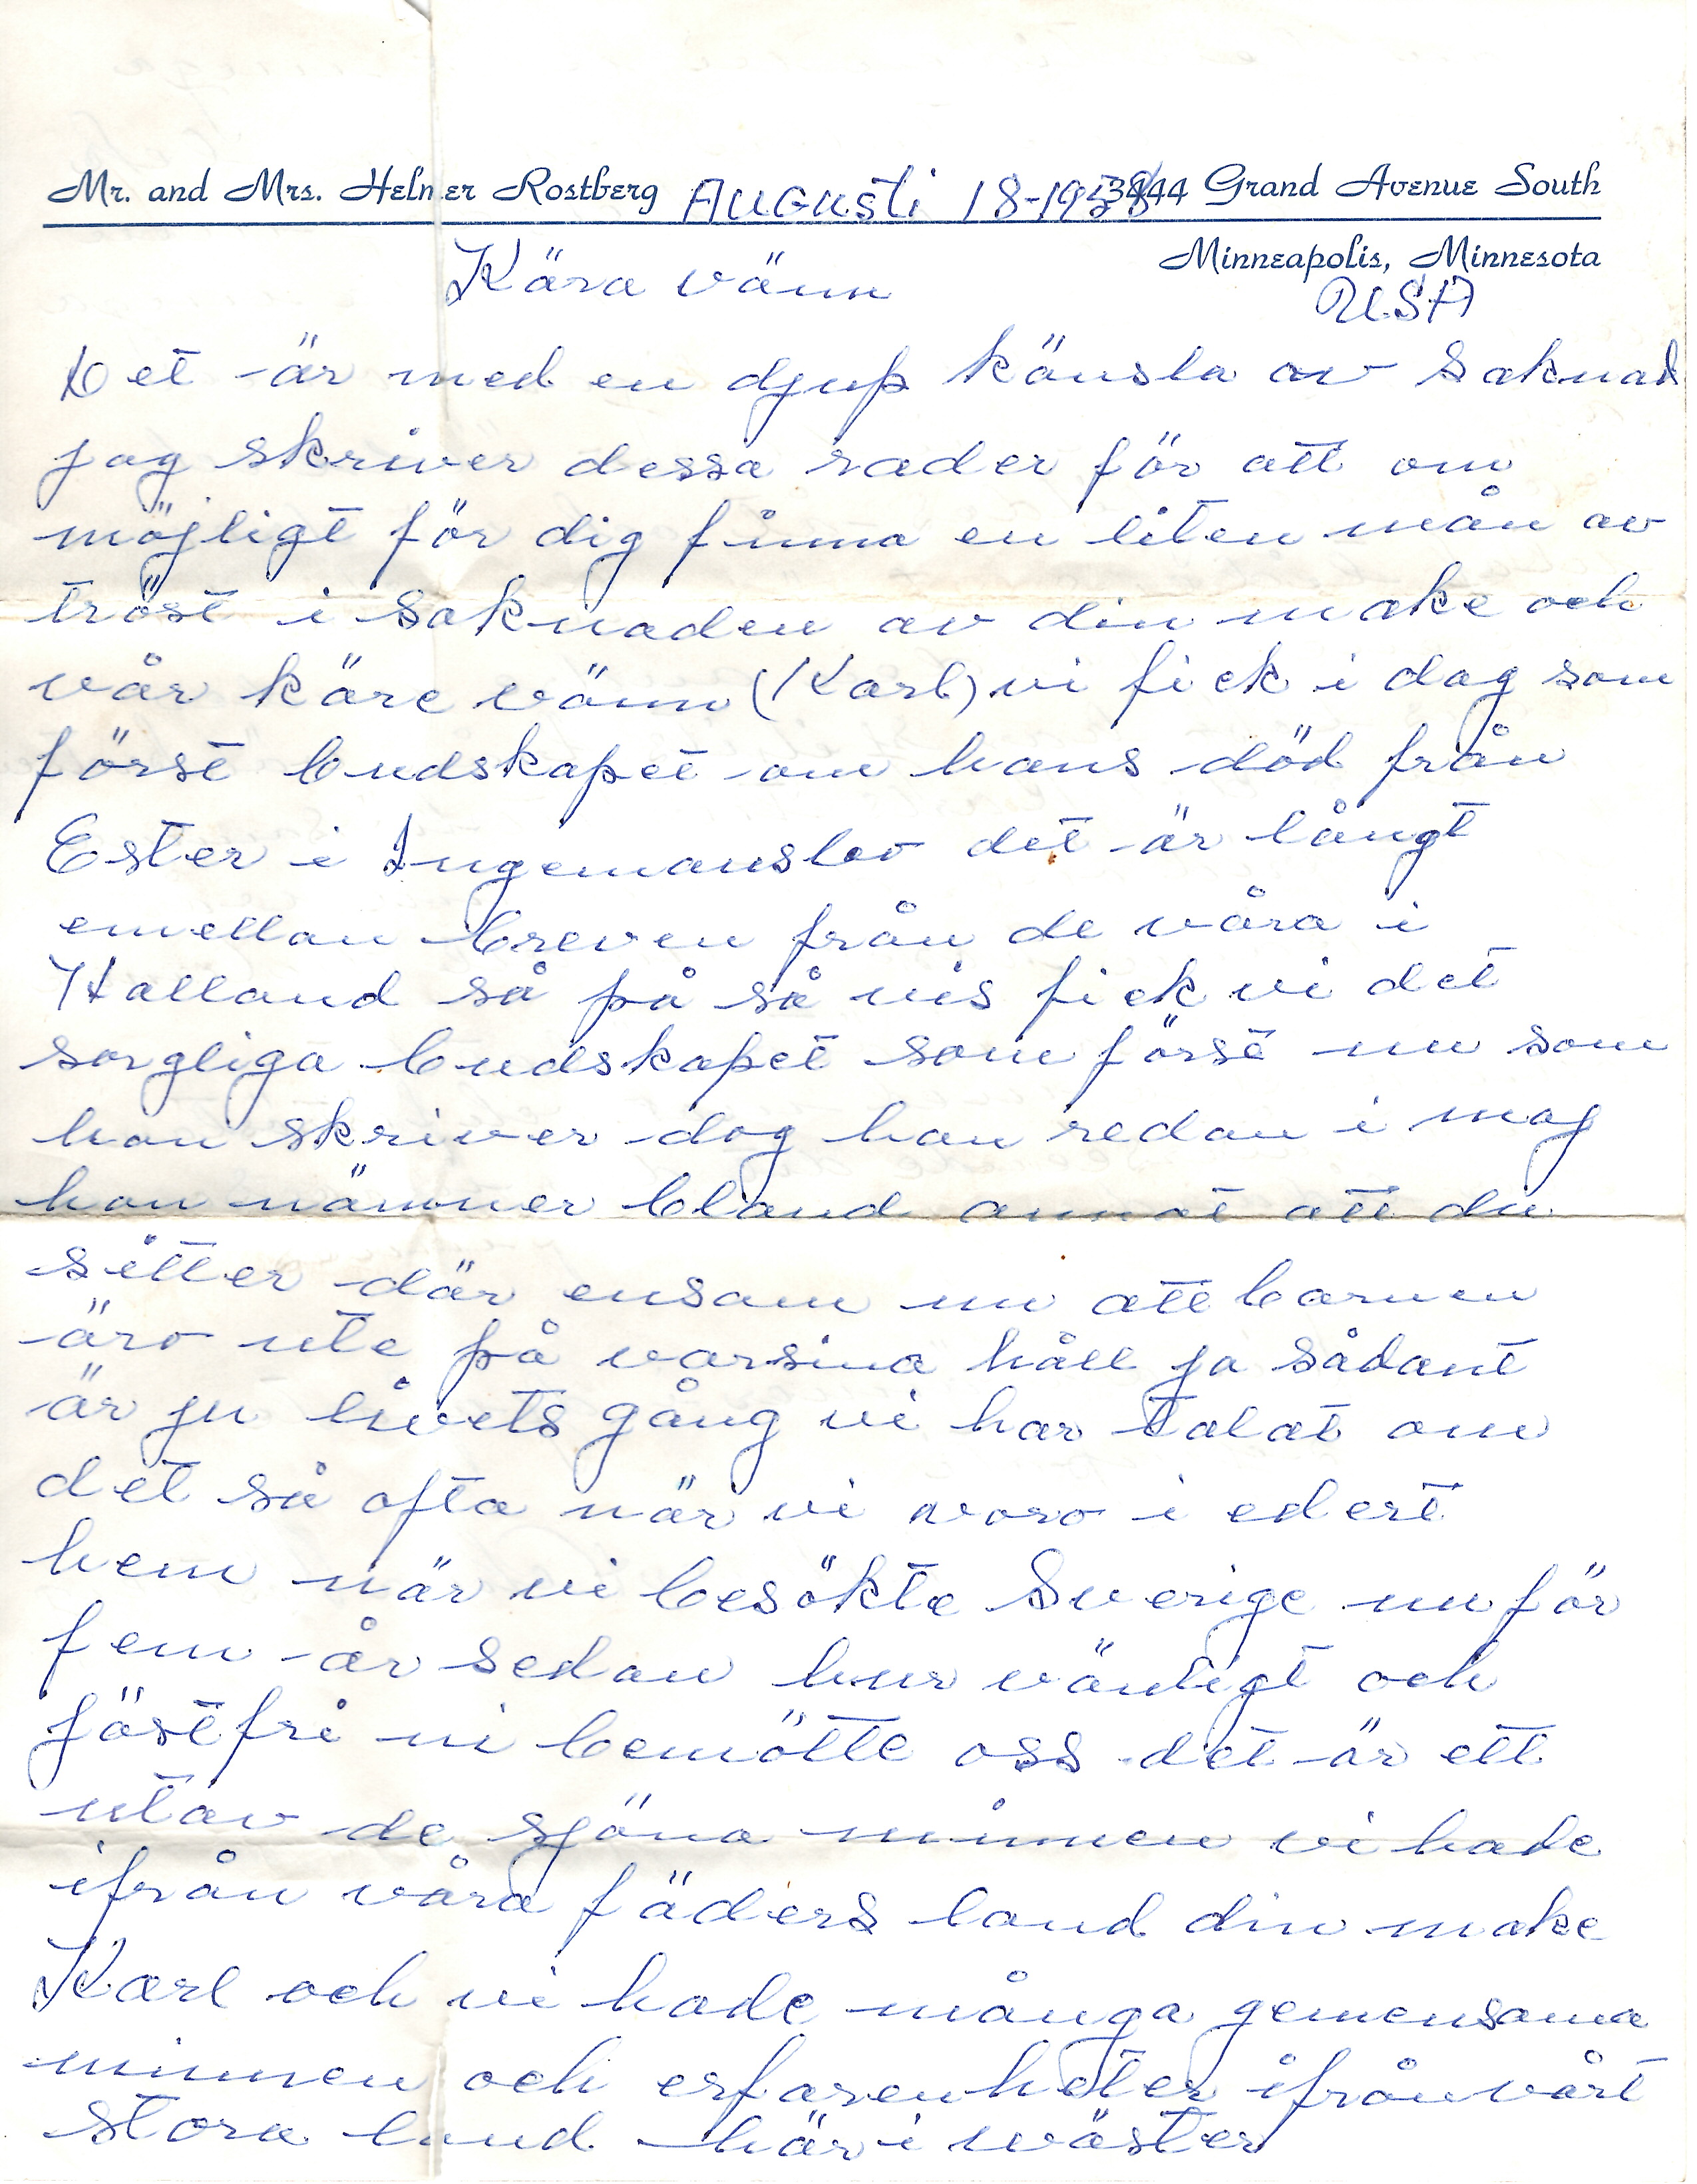 Mr. and Mrs. Helmer Rostberg Augusti 18-1958 3444 Grand Avenue South
Minneapolis, Minnesota
USA
Kära vänn
Det är med en djup känsla av saknad
jag skriver dessa rader för att om
möjligt för dig finna en liten mån av
tröst i saknaden av din make och
vår käre vänn (Karl) vi fick i dag som
först budskapet om hans död från
Ester i Ingemanslov det är långt
emellan breven från de våra i
Halland så på så vis fick vi det
sorgliga budskapet som först nu som
hon skriver dog han redan i maj
hon nämner bland annat att du
sitter där ensam nu att barnen
äro ute på varsina håll ja sådant
är ju livets gång vi har talat om
det så ofta när vi voro i edert
hem när vi besökte Sverige nu för
fem år sedan hur vänligt och
jästfri ni bemötte oss det är ett
utav de sjöna minnen vi hade
ifrån våra fäders land din make
Karl och vi hade många gemensama
minnen och erfarenheter ifrån vårt
stora land här i väster